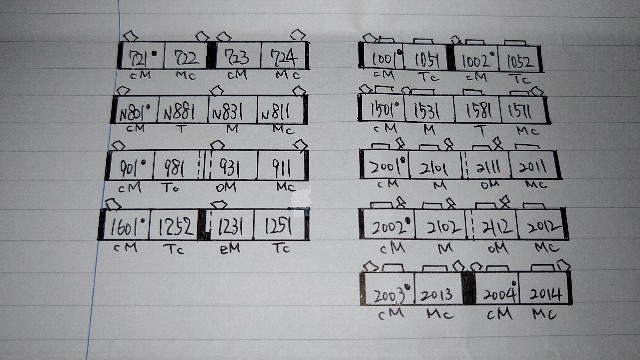 721 722 723 724
cM Mc cM Mc
N801 N881 N831 N811
cM T M Mc
901 981 931 911
cM Tc oM Mc
1601 1252 1231 1251
cM Tc eM Tc
1001 1051 1002 1052
cM Tc cM Tc
1501 1531 1581 1511
cM M T Mc
2001 2101 2111 2011
cM M oM Mc
2002 2102 2112 2012
cM M oM Mc
2003 2013 2004 2014
cM Mc cM Mc